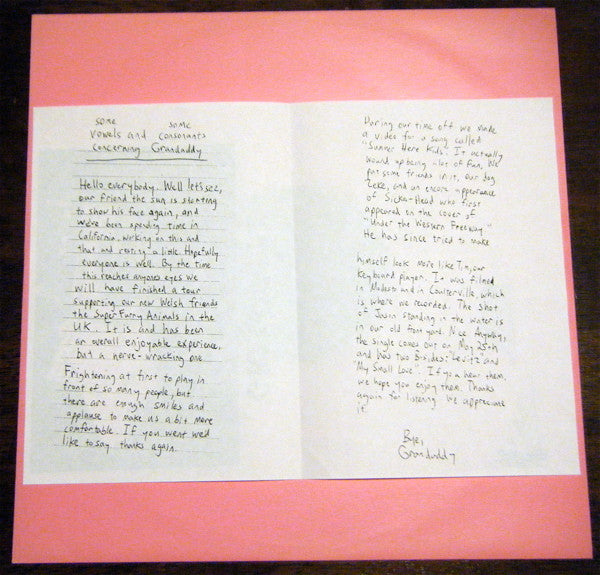 some some
vowels and consonants
concerning Grandaddy
Hello everybody. Well let's see,
our friend the sun is starting
to show his face again, and
we've been spending time in
California, working on this and
that and resting a little. Hopefully
everyone is well. By the time
this reaches anyones eyes we
will have finished a tour
supporting our new Welsh friends
the Super Furry Animals in the
UK. It is and has been
an overall enjoyable experience,
but a nerve-wracking one
Frightening at first to play in
front of so many people, but
there are enough smiles and
applause to make us a bit more
comfortable. If you went we'd
like to say thanks again.
During our time off we made
a video for a song called
"Summer Here Kids". It actually
wound up being alot of fun. We
put some friends in it, our dog
Zeke, and an encore appearance
of Sicko-Head who first
appeared on the cover of
"Under the Western Freeway."
He has since tried to make
himself look more like Tim, our
keyboard player. It was filmed
in Modesto and in Coulterville, which
is where we recorded. The shot
of Jason standing in the water is
in our old front yard. Nice Anyway,
the single comes out on May 25th
and has two B-sides: "Levitz" and
"My Small Love". If you hear them
we hope you enjoy them. Thanks
again for listening We appreciate
it
Bye,
Grandaddy